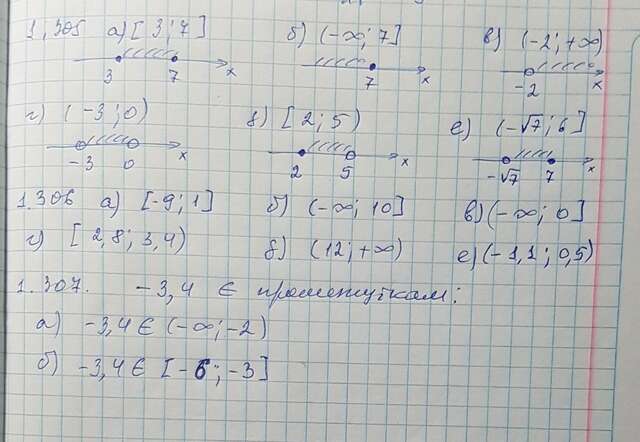 1.305 а) [3; 7] б) (-∞; 7] в) (-2; +∞)
3 7 x 7 x -2 x
г) (-3; 0) д) [2; 5) е) (-√7; 6]
-3 0 x 2 5 x -√7 7 x
1.306 а) [-9; 1] б) (-∞; 10] в) (-∞; 0]
г) [2,8; 3,4) д) (12; +∞) е) (-1,1; 0,5)
1.307. -3,4 ∈ промежуткам:
а) -3,4 ∈ (-∞; -2)
б) -3,4 ∈ [-6; -3]